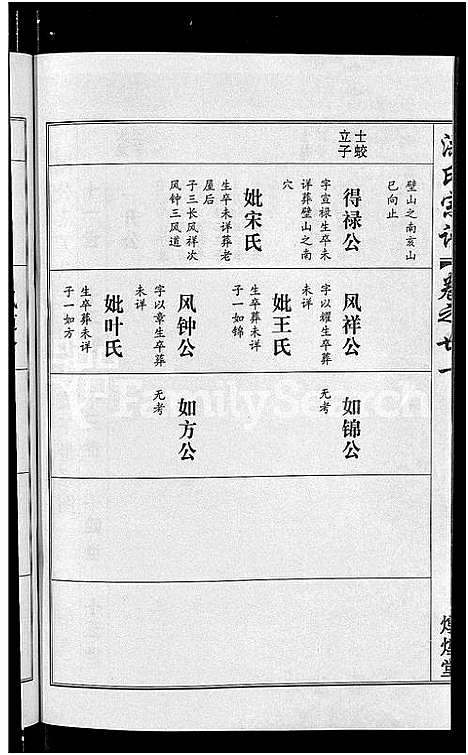 壁山之南亥山
巳向止
士蛟
立子
得禄公
字宣禄生卒未
详葬壁山之南
穴
妣宋氏
生卒未详葬老
屋后
子三长风祥次
风钟三风道
风祥公
字以耀生卒葬
未详
妣王氏
生卒葬未详
子一如锦
风钟公
字以章生卒葬
未详
妣叶氏
生卒葬未详
子一如方
如锦公
无考
如方公
无考
氏宗谱
卷之廿一
堂
FamilySearch